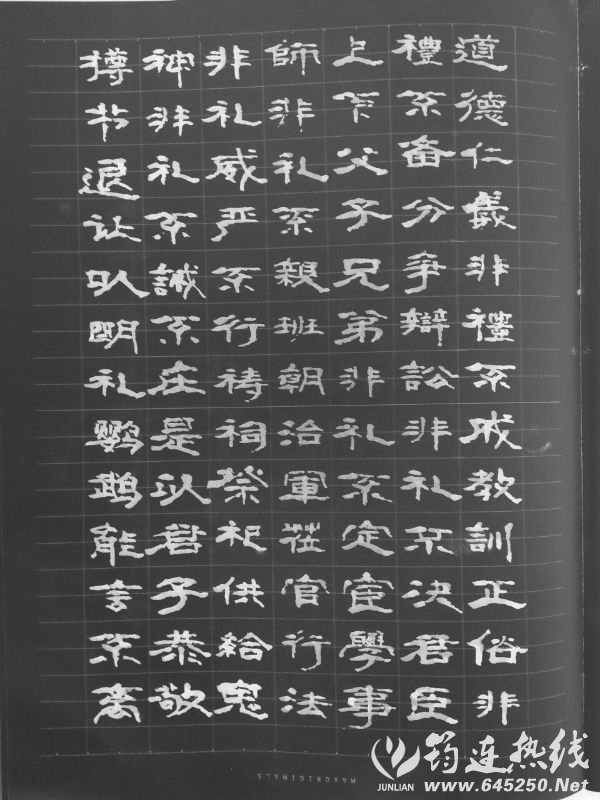 道德仁義非禮不成教訓正俗非
禮不备分爭辯訟非礼不決君臣
上下父子兄弟非礼不定宦學事
師非礼不親班朝治軍莅官行法
非礼威严不行祷祠祭祀供給鬼
神非礼不誠不庄是以君子恭敬
撙节退让以明礼鹦鹉能言不离
MAXORIGINALS
筠连热线
JUNLIAN www.645250.Net